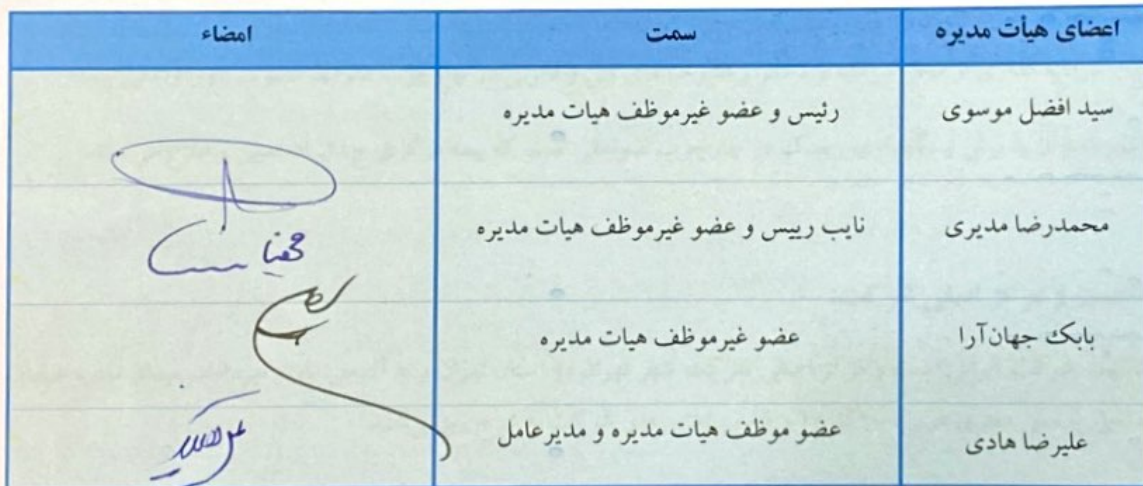 اعضای هیأت مدیره سمت امضاء
سید افضل موسوی رئیس و عضو غیرموظف هیات مدیره
محمدرضا مدیری نایب رییس و عضو غیرموظف هیات مدیره
بابک جهان‌آرا عضو غیرموظف هیات مدیره
علیرضا هادی عضو موظف هیات مدیره و مدیرعامل